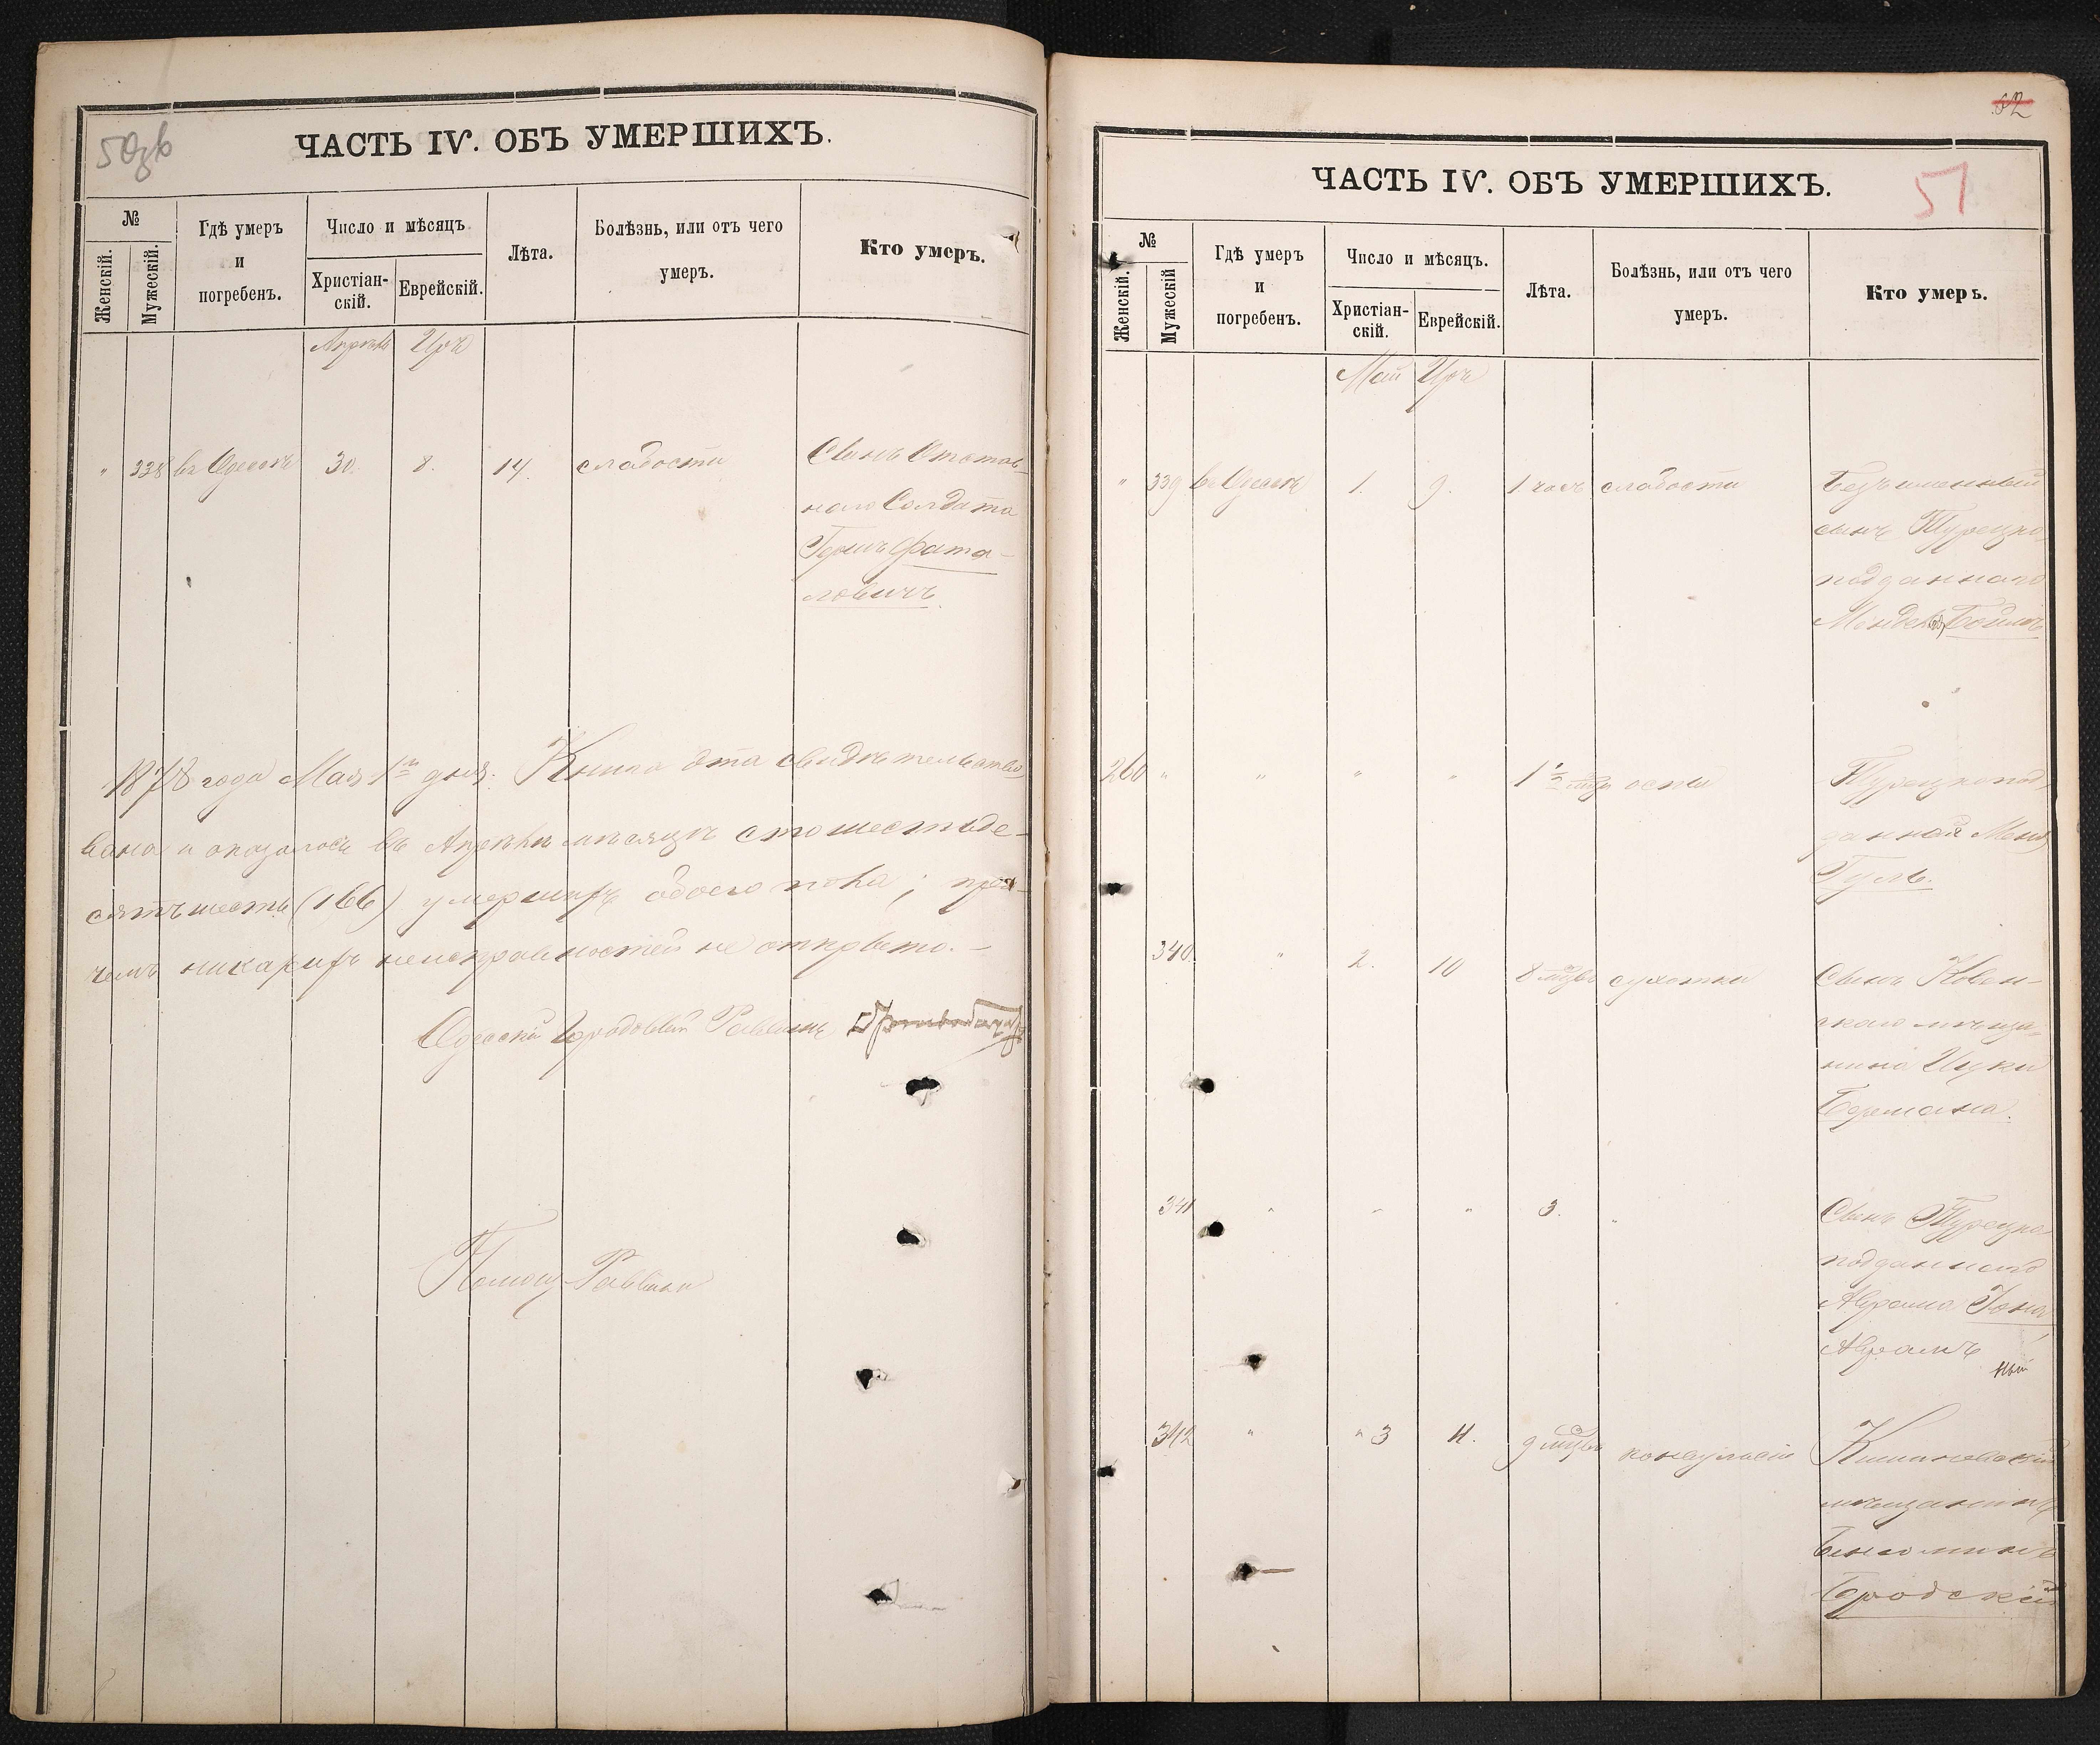 50об
ЧАСТЬ IV. ОБЪ УМЕРШИХЪ.
№
Женскій.
Мужескій.
Гдѣ умеръ
и
погребенъ.
Число и мѣсяцъ
Христіан-
скій.
Еврейскій.
Лѣта.
Болѣзнь, или отъ чего
умеръ.
Кто умеръ.
Апрѣль Иръ
" 338 въ Одессѣ 30. 8. 14. слабости Сынъ Отстав-
наго Солдата
Гершъ Фата-
ловичъ.
1878 года Мая 1го дня. Книга эта свидѣтельство-
вана и оказалось въ Апрѣлѣ мѣсяцѣ сто шестьде-
сятъ шесть (166) умершихъ обоего пола; при-
чемъ никакихъ неисправностей не открыто. —
Одесскій Городовый Раввинъ
Помощ. Раввина
52
ЧАСТЬ IV. ОБЪ УМЕРШИХЪ.
51
№
Женскій.
Мужескій
Гдѣ умеръ
и
погребенъ.
Число и мѣсяцъ.
Христіан-
скій.
Еврейскій.
Лѣта.
Болѣзнь, или отъ чего
умеръ.
Кто умеръ.
Май Иръ
" 339 въ Одессѣ 1. 9. 1 часъ слабости Безъименный
сынъ Турецко-
подданнаго
Мендель
260 " " " " 1½ оспы Турецкопод-
данная
340. " 2. 10 8 мцвъ сухотки Сынъ Ковен-
скаго мѣща-
нина Ицки
Бермана.
341 " " " 3. " Сынъ Турецко-
подданнаго
Абрама
Абрамъ
342 " " 3 11. 9 мцвъ конвульсіи Кишиневскій
ный
мѣщанинъ
Беніоминъ
Бродскій